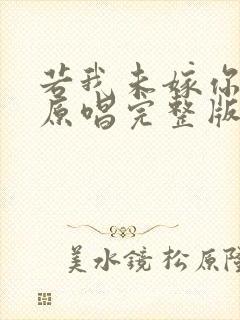 若我未嫁你
原唱完整版
美水镜松原隆